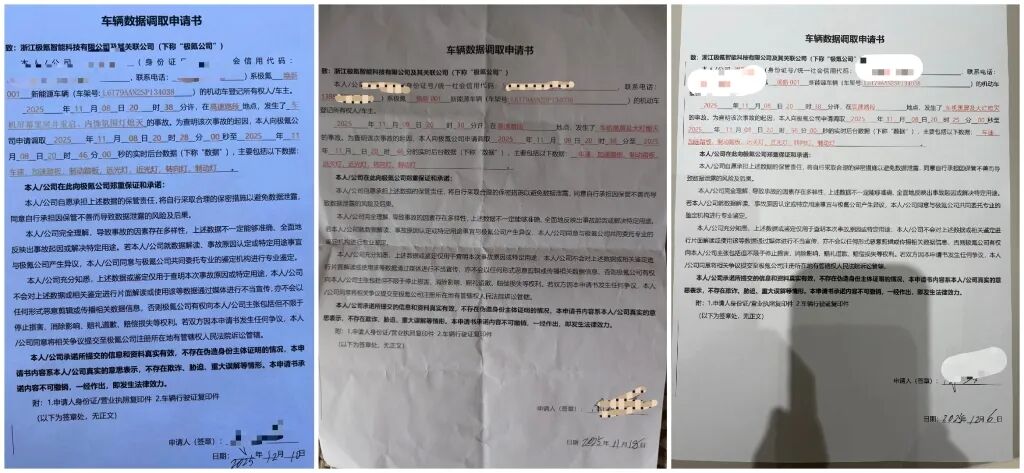 车辆数据调取申请书
致：浙江极氪智能科技有限公司及其关联公司（下称“极氪公司”）
本人/公司（身份证 会信用代码：
，联系电话： ）系极氪
001 新能源车辆（车架号：L6T79AN2SP134038 ）的机动车登记所有权人/车主。
2025 年 11 月 08 日 20 时 38 分许，在高速路段 地点，发生了 车
机屏幕黑屏并重启、内饰氛围灯熄灭 的事故。为查明该次事故的起因，本人向极氪公
司申请调取 2025 年 11 月 08 日 20 时 28 分 00 秒至 2025 年 11
月 08 日 20 时 46 分 00 秒的实时后台数据（下称“数据”），主要包括以下数据：
车速、加速踏板、制动踏板、远光灯、近光灯、转向灯、制动灯
本人/公司在此向极氪公司郑重保证和承诺：
本人/公司自愿承担上述数据的保管责任，将自行采取合理的保密措施以避免数据泄露，
同意自行承担因保管不善而导致数据泄露的风险及后果。
本人/公司完全理解，导致事故的因素存在多样性，上述数据不一定能够准确、全面地
反映出事故起因或解决特定用途。若本人/公司就数据解读、事故原因认定或特定用途事宜
与极氪公司产生异议，本人/公司同意与极氪公司共同委托专业的鉴定机构进行专业鉴定。
本人/公司充分知悉，上述数据或相关鉴定仅用于查明本次事故原因或特定用途，本人/公司
不会对上述数据或相关鉴定进行片面解读或使用该等数据通过媒体进行不当宣传，亦不会以
任何形式恶意剪辑或传播相关数据信息，否则极氪公司有权向本人/公司主张包括但不限于
停止损害、消除影响、赔礼道歉、赔偿损失等权利。若双方因本申请书发生任何争议，本人
/公司同意将相关争议提交至极氪公司注册所在地有管辖权人民法院诉讼管辖。
本人/公司承诺所提交的信息和资料真实有效，不存在伪造身份主体证明的情况，本申
请书内容系本人/公司真实的意思表示，不存在欺诈、胁迫、重大误解等情形。本申请书承
诺内容不可撤销，一经作出，即发生法律效力。
附：1.申请人身份证/营业执照复印件 2.车辆行驶证复印件
（以下为签章处，无正文）
申请人（签章）：
日期：2025年12月10日
车辆数据调取申请书
致：浙江极氪智能科技有限公司及其关联公司（下称“极氪公司”）
本人/公司 （身份证号/统一社会信用代码： ，联系电话：
）系极氪 001 新能源车辆（车架号：L6T79AN2SP134038 ）的机动车
登记所有权人/车主。
2025 年 11 月 08 日 20 时 38 分许，在高速路段 地点，发生了
的事故。为查明该次事故的起因，本人向极氪公司申请调取
2025 年 11 月 08 日 20 时 46 分 00 秒的实时后台数据（下称“数据”），主要包括以下数据：车速、加速踏板、制动踏板、
远光灯、近光灯、转向灯、制动灯
本人/公司在此向极氪公司郑重保证和承诺：
本人/公司自愿承担上述数据的保管责任，将自行采取合理的保密措施以避免数据泄露，同意自行承担因保管不善而
导致数据泄露的风险及后果。
本人/公司完全理解，导致事故的因素存在多样性，上述数据不一定能够准确、全面地反映出事故起因或解决特定用途。
若本人/公司就数据解读、事故原因认定或特定用途事宜与极氪公司产生异议，本人/公司同意与极氪公司共同委托专业的鉴
定机构进行专业鉴定。
本人/公司充分知悉，上述数据或相关鉴定仅用于查明本次事故原因或特定用途，本人/公司不会对上述数据或相关鉴定进
行片面解读或使用该等数据通过媒体进行不当宣传，亦不会以任何形式恶意剪辑或传播相关数据信息，否则极氪公司有权
向本人/公司主张包括但不限于停止损害、消除影响、赔礼道歉、赔偿损失等权利。若双方因本申请书发生任何争议，本人/
公司同意将相关争议提交至极氪公司注册所在地有管辖权人民法院诉讼管辖。
本人/公司承诺所提交的信息和资料真实有效，不存在伪造身份主体证明的情况，本申请书内容系本人/公司真实的意
思表示，不存在欺诈、胁迫、重大误解等情形。本申请书承诺内容不可撤销，一经作出，即发生法律效力。
附：1.申请人身份证/营业执照复印件 2.车辆行驶证复印件
（以下为签章处，无正文）
申请人（签章）：
日期：2025年11月18日
车辆数据调取申请书
致：浙江极氪智能科技有限公司及其关联公司（下称“极氪公司”）
本人/公司 身份证号/统一社会信用代码： ，联系电话：
）系极氪 001 新能源车辆（车架号：L6T79AN2SP134038 ）的机动车
登记所有权人/车主。
2025 年 11 月 08 日 20 时 38 分许，在高速路段 地点，发生了 车机黑屏及大灯熄灭
的事故。为查明该次事故的起因，本人向极氪公司申请调取 2025 年 11 月 08 日 20 时 25 分 00 秒至
2025 年 11 月 08 日 20 时 50 分 00 秒的实时后台数据（下称“数据”），主要包括以下数据：车速、
加速踏板、制动踏板、远光灯、近光灯、转向灯、制动灯
本人/公司在此向极氪公司郑重保证和承诺：
本人/公司自愿承担上述数据的保管责任，将自行采取合理的保密措施以避免数据泄露，同意自行承担因保管不善而
导致数据泄露的风险及后果。
本人/公司完全理解，导致事故的因素存在多样性，上述数据不一定能够准确、全面地反映出事故起因或解决特定用途。
若本人/公司就数据解读、事故原因认定或特定用途事宜与极氪公司产生异议，本人/公司同意与极氪公司共同委托专业的
鉴定机构进行专业鉴定。
本人/公司充分知悉，上述数据或相关鉴定仅用于查明本次事故原因或特定用途，本人/公司不会对上述数据或相关鉴定
进行片面解读或使用该等数据通过媒体进行不当宣传，亦不会以任何形式恶意剪辑或传播相关数据信息，否则极氪公司有
权向本人/公司主张包括但不限于停止损害、消除影响、赔礼道歉、赔偿损失等权利。若双方因本申请书发生任何争议，本
人/公司同意将相关争议提交至极氪公司注册所在地有管辖权人民法院诉讼管辖。
本人/公司承诺所提交的信息和资料真实有效，不存在伪造身份主体证明的情况，本申请书内容系本人/公司真实的
意思表示，不存在欺诈、胁迫、重大误解等情形。本申请书承诺内容不可撤销，一经作出，即发生法律效力。
附：1.申请人身份证/营业执照复印件 2.车辆行驶证复印件
（以下为签章处，无正文）
申请人（签章）：
日期：2025年12月6日